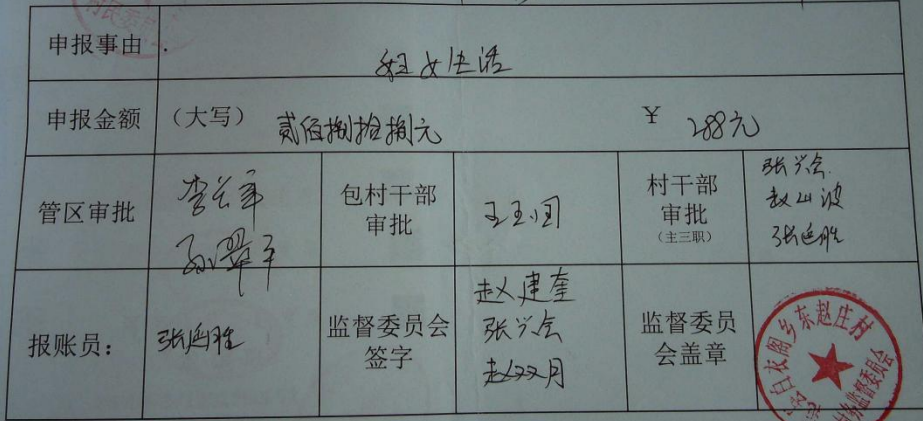 村民委员会
申报事由
妇女生活
申报金额 （大写） 贰佰捌拾捌元 ￥ 288元
管区审批 李兰军 包村干部审批 村干部审批（主三职） 张兴会
赵山波
张延胜
报账员： 张延胜 监督委员会签字 赵建奎
张兴会
赵双月
监督委员会盖章
白衣阁乡东赵庄村
村务监督委员会